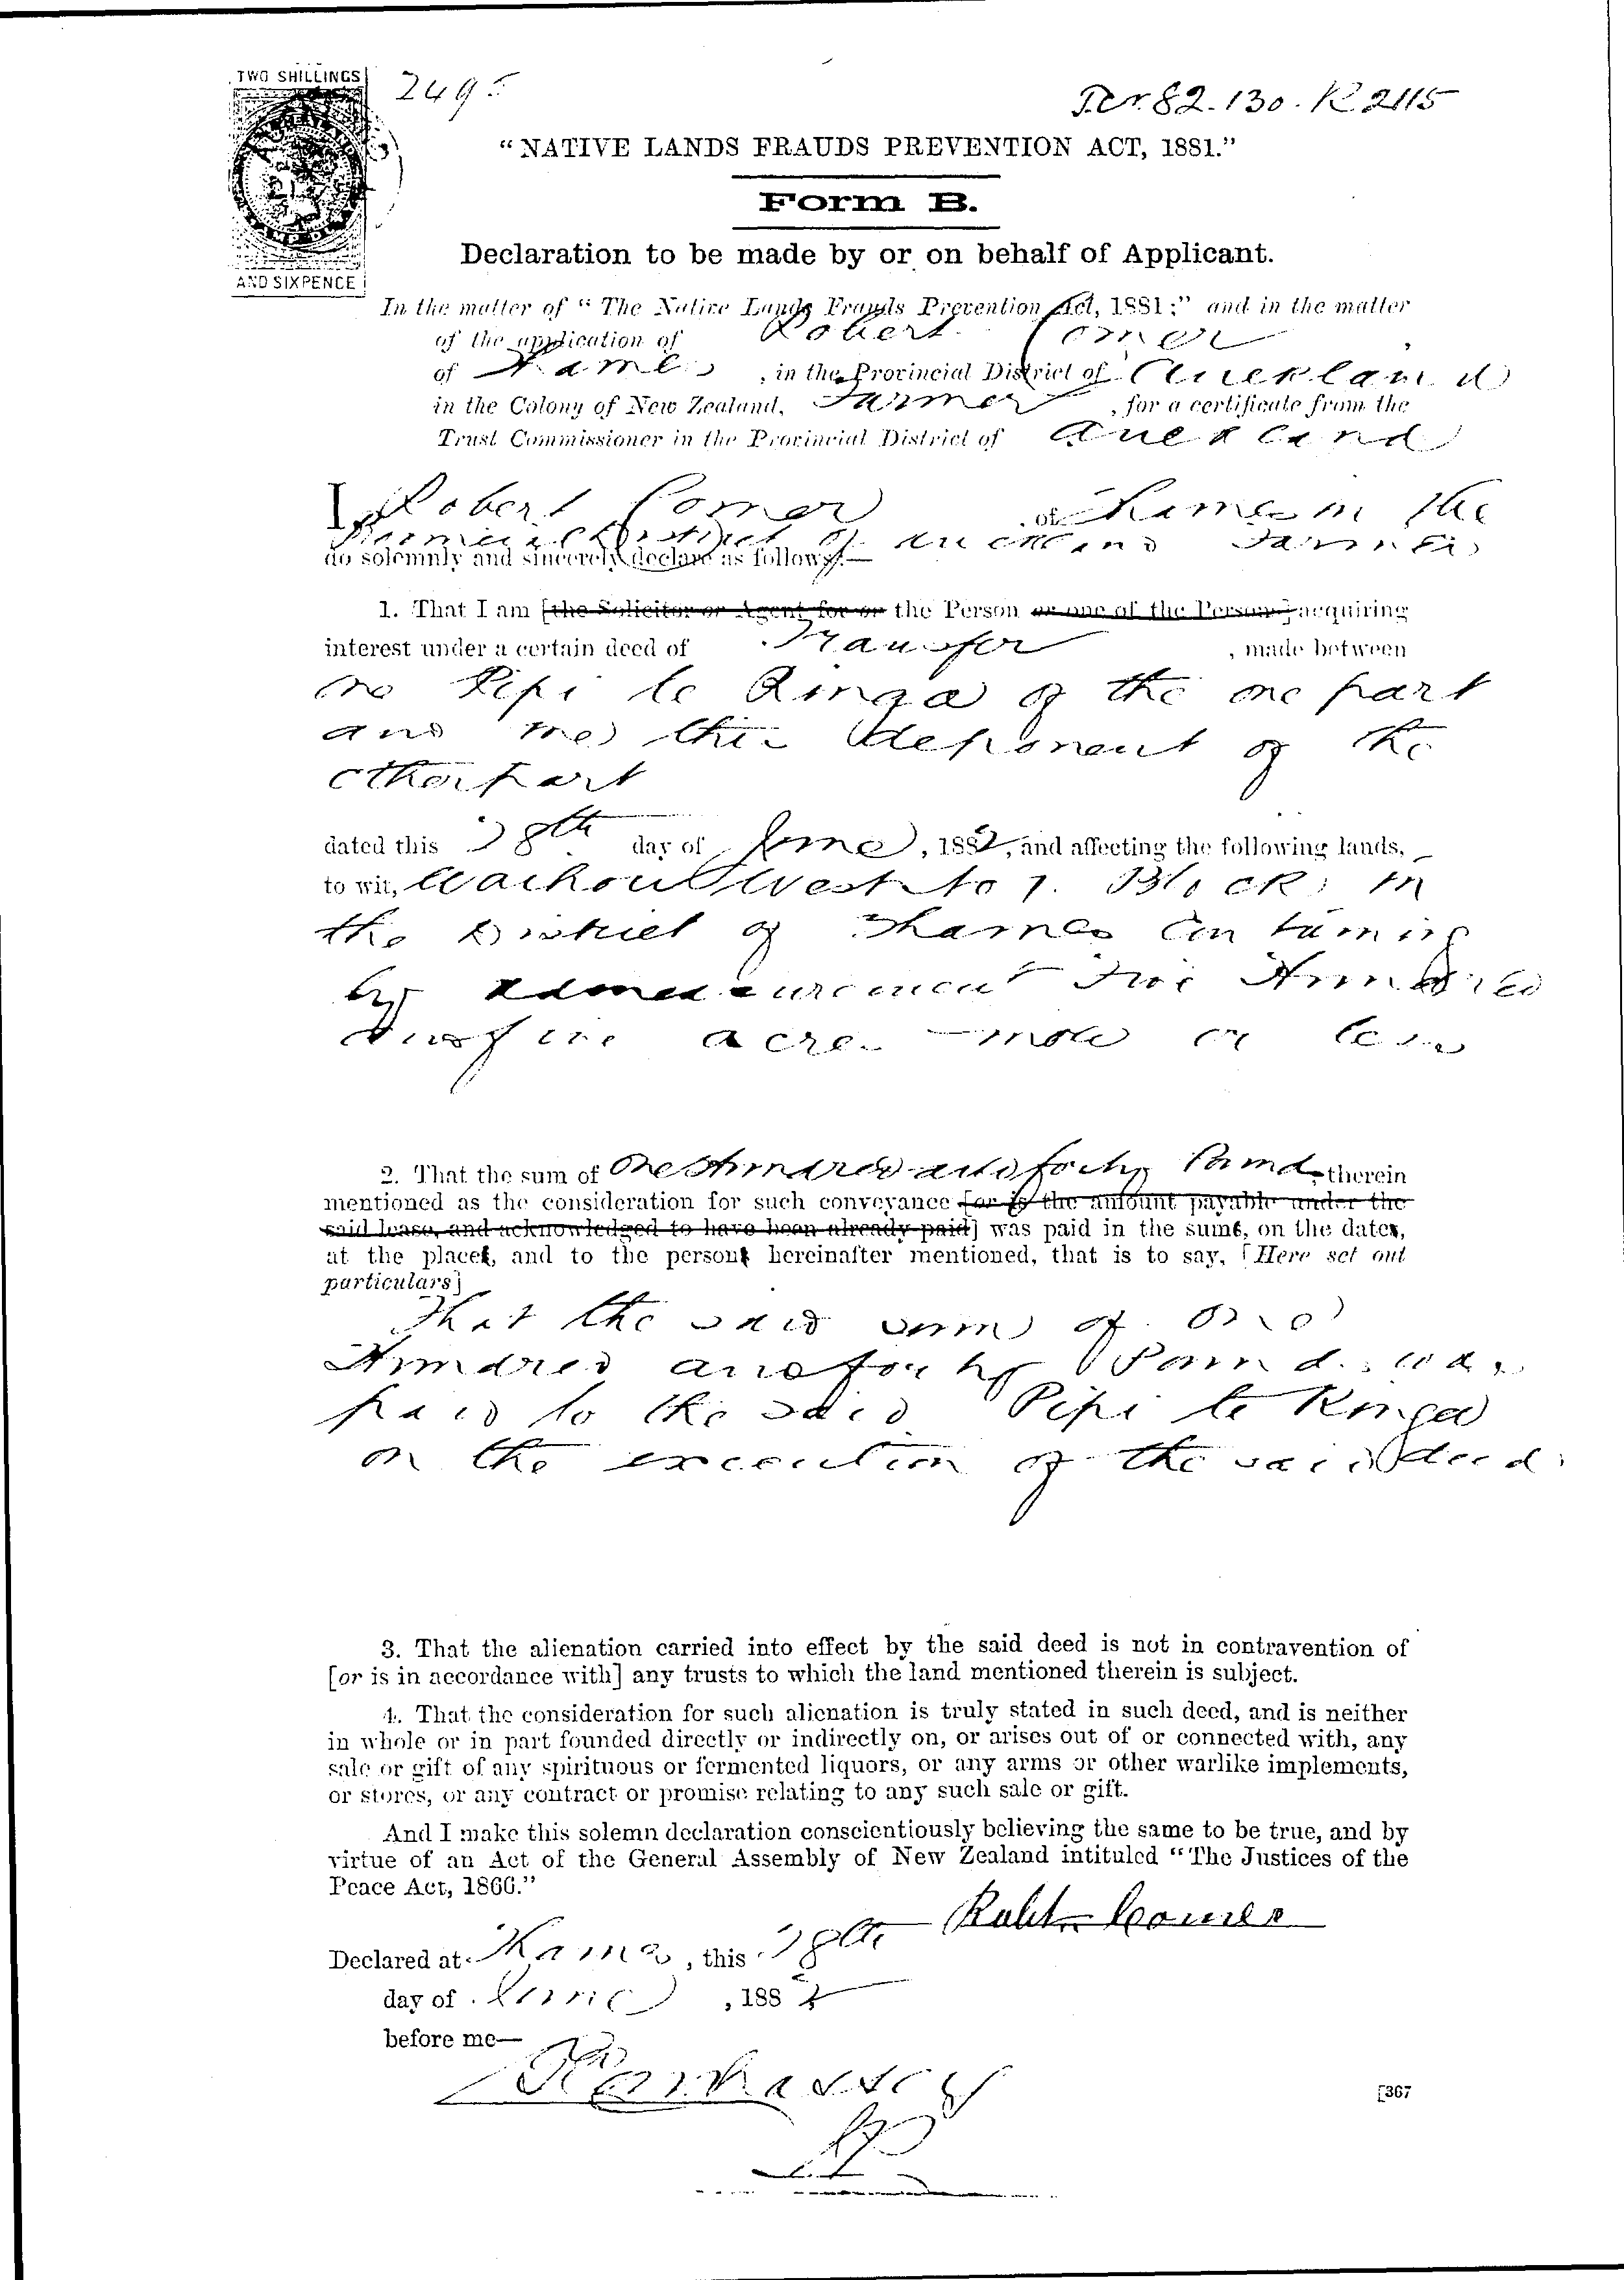 TWO SHILLINGS
AND SIXPENCE
2495
Tcr. 82. 130. R 2115
“NATIVE LANDS FRAUDS PREVENTION ACT, 1881.”
Form B.
Declaration to be made by or on behalf of Applicant.
In the matter of “The Native Lands Frauds Prevention Act, 1881;” and in the matter
of the application of Robert Comer
of Thames, in the Provincial District of Auckland
in the Colony of New Zealand, Farmer, for a certificate from the
Trust Commissioner in the Provincial District of Auckland
I Robert Comer of Thames in the
Provincial District of Auckland Farmer
do solemnly and sincerely declare as follows:—
1. That I am [the Solicitor or Agent for or the Person or one of the Persons] acquiring
interest under a certain deed of Transfer, made between
Pipi te Ringa of the one part
and me this deponent of the
other part
dated this 28th day of June, 1882, and affecting the following lands,
to wit, Waihou West No 1. Block in
the District of Thames Containing
by Admeasurement Two Hundred
acres more or less
2. That the sum of One Hundred and forty Pounds therein
mentioned as the consideration for such conveyance [or is the amount payable under the
said lease, and acknowledged to have been already paid] was paid in the sums, on the dates,
at the places, and to the persons hereinafter mentioned, that is to say, [Here set out
particulars]
That the said sum of One
Hundred and forty Pounds was
paid to the said Pipi te Ringa
on the execution of the said deed.
3. That the alienation carried into effect by the said deed is not in contravention of
[or is in accordance with] any trusts to which the land mentioned therein is subject.
4. That the consideration for such alienation is truly stated in such deed, and is neither
in whole or in part founded directly or indirectly on, or arises out of or connected with, any
sale or gift of any spirituous or fermented liquors, or any arms or other warlike implements,
or stores, or any contract or promise relating to any such sale or gift.
And I make this solemn declaration conscientiously believing the same to be true, and by
virtue of an Act of the General Assembly of New Zealand intituled “The Justices of the
Peace Act, 1866.”
Robt. Comer
Declared at Thames, this 28th
day of June, 1882
before me—
[367